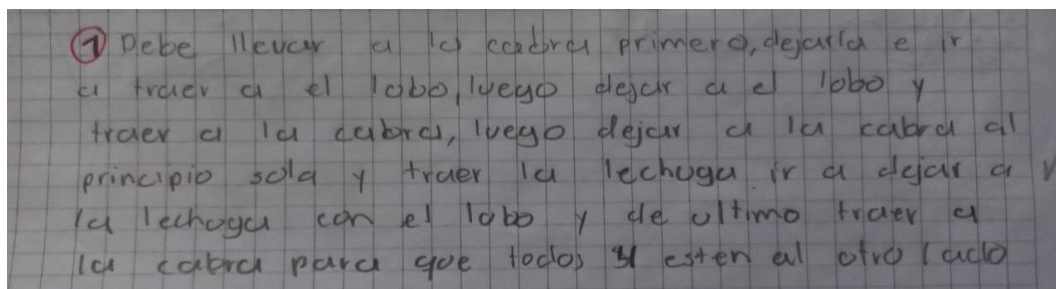 ① Debe llevar a la cabra primero, dejarla e ir
a traer a el lobo, luego dejar a el lobo y
traer a la cabra, luego dejar a la cabra al
principio sola y traer la lechuga ir a dejar a
la lechoga con el lobo y de ultimo traer a
la cabra para que todos esten al otro lado